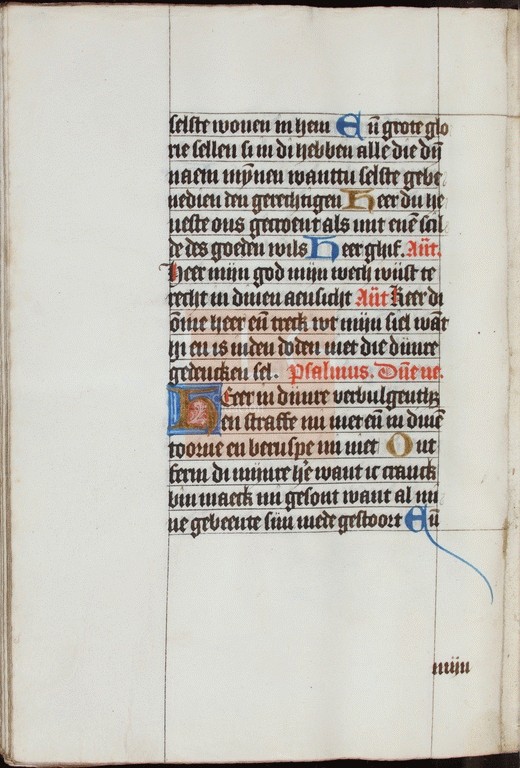 selste wonen in hem En̄ grote glo
rie sellen si in di hebben alle die dyn̄
naem mynen wanttu selste gebe
nedien den gerechtigen Heer du he
neste ons gecroent als mit enē scil
de des goeden wils Heer glüf. An̄t.
Heer mijn god mijn wech wijst te
recht in dinen aensicht An̄t Keer di
ōme heer en̄ treck wt mijn siel wāt
hi en is inden doden niet die dijnre
gedencken sel. Psalmus. Dn̄e ne.
HEer in dijnre verbulgentheȝ
en straffe mi niet en̄ in dinē
toorne en beruspe mi niet Ont
ferm di mijnre hē want ic cranck
bin maeck mi gesont want al mi
ne gebeente sijn mede gestoort En̄